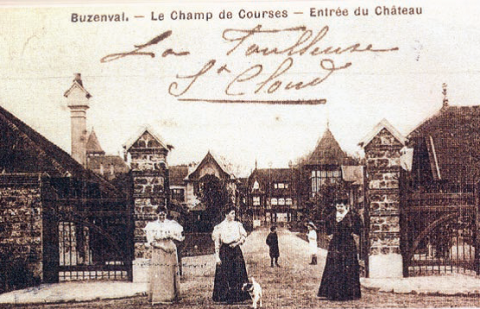 Buzenval. — Le Champ de Courses — Entrée du Château
La Fouilleuse
St Cloud